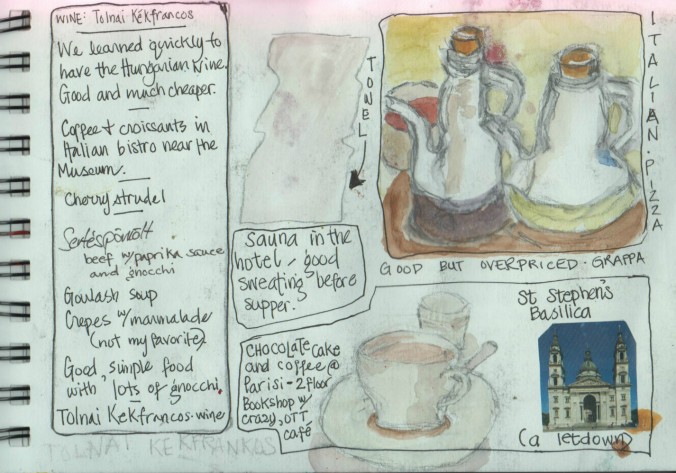 WINE: Tolnai Kékfrancos
We learned quickly to
have the Hungarian Wine.
Good and much cheaper.
Coffee + croissants in
Italian bistro near the
Museum.
Cherry strudel
beef w/paprika sauce
and gnocchi
Goulash soup
Crepes w/marmalade
(not my favorite)
Good, simple food
with lots of gnocchi
Tolnai Kekfrancos wine
TOLNAI KEKFRANKOS
TOWEL
sauna in the
hotel, good
sweating before
supper.
ITALIAN PIZZA
GOOD BUT OVERPRICED. GRAPPA
CHOCOLATE cake
and coffee @
Parisi - 2 floor
Bookshop w/
crazy, OTT
café
St Stephen's
Basilica
(a letdown)